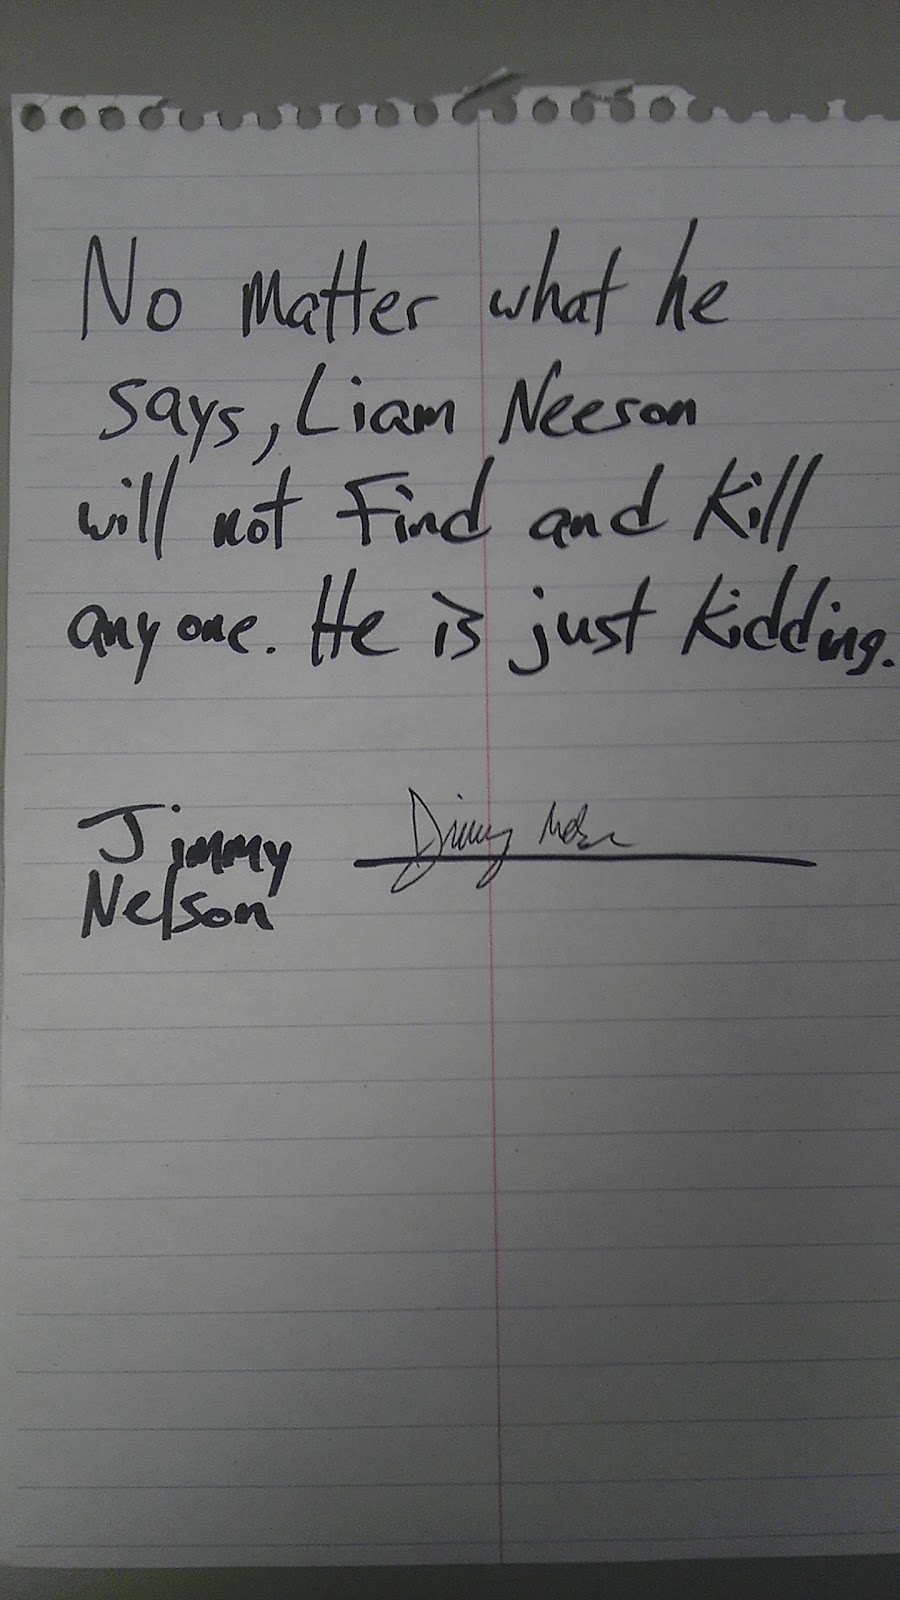 No matter what he
says, Liam Neeson
will not Find and Kill
anyone. He is just Kidding.
Jimmy
Nelson